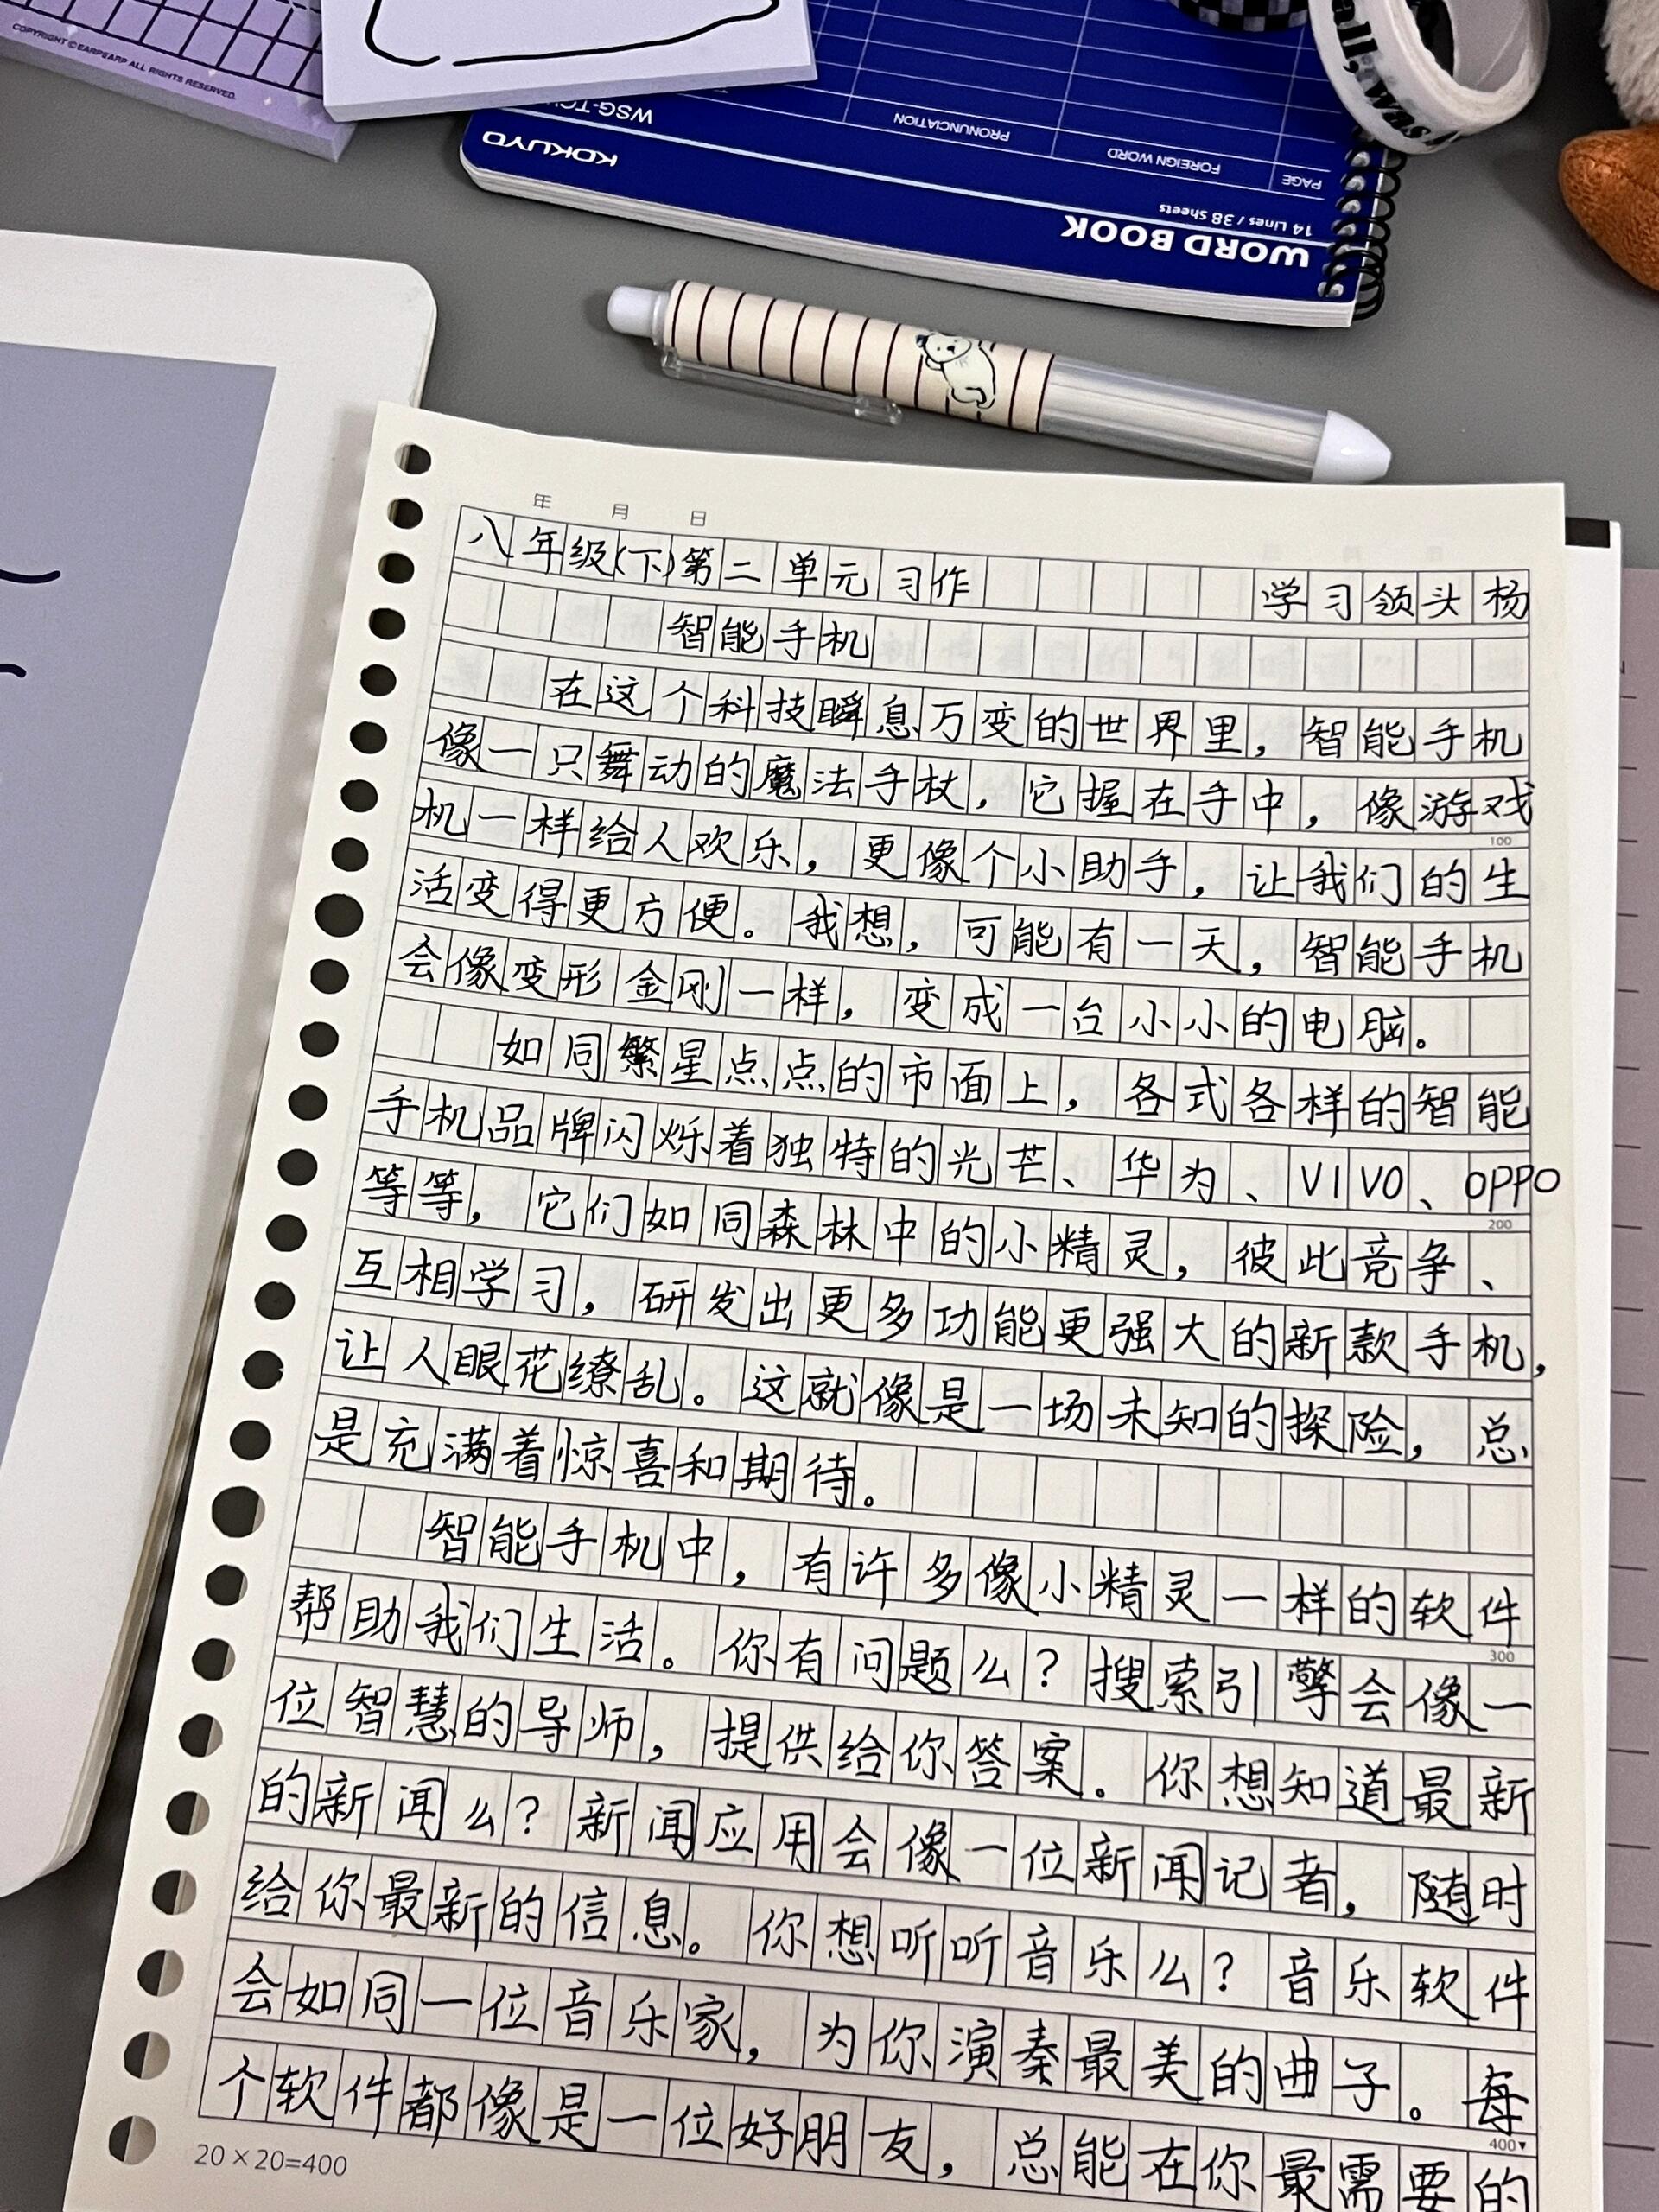 COPYRIGHT © EARPEARP ALL RIGHTS RESERVED.
KOKUYO
PRONUNCIATION
FOREIGN WORD
PAGE
14 Lines / 38 Sheets
WORD BOOK
年 月 日
八年级(下)第二单元习作 学习领头杨
智能手机
在这个科技瞬息万变的世界里，智能手机
像一只舞动的魔法手杖，它握在手中，像游戏
100
机一样给人欢乐，更像个小助手，让我们的生
活变得更方便。我想，可能有一天，智能手机
会像变形金刚一样，变成一台小小的电脑。
如同繁星点点的市面上，各式各样的智能
手机品牌闪烁着独特的光芒、华为、VIVO、OPPO
200
等等，它们如同森林中的小精灵，彼此竞争、
互相学习，研发出更多功能更强大的新款手机，
让人眼花缭乱。这就像是一场未知的探险，总
是充满着惊喜和期待。
智能手机中，有许多像小精灵一样的软件
300
帮助我们生活。你有问题么？搜索引擎会像一
位智慧的导师，提供给你答案。你想知道最新
的新闻么？新闻应用会像一位新闻记者，随时
给你最新的信息。你想听听音乐么？音乐软件
会如同一位音乐家，为你演奏最美的曲子。每
400▼
个软件都像是一位好朋友，总能在你最需要的
20×20=400